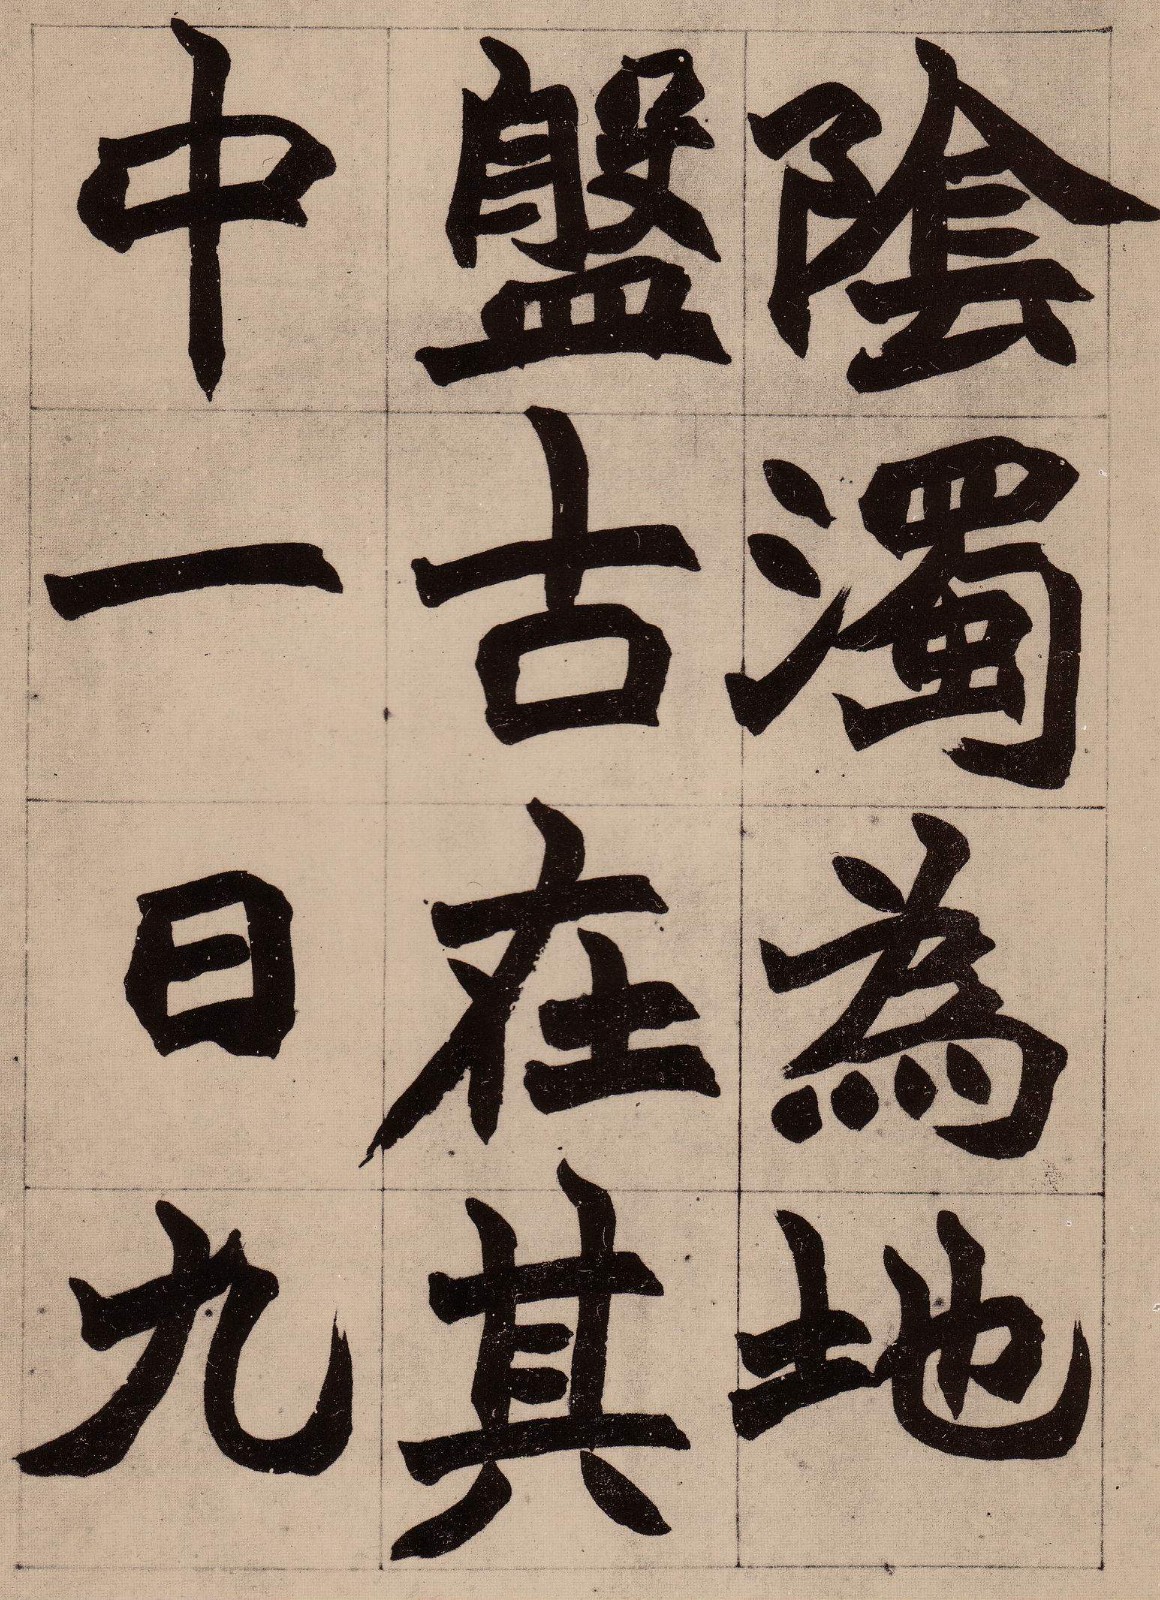 陰濁為地
盤古在其
中一日九